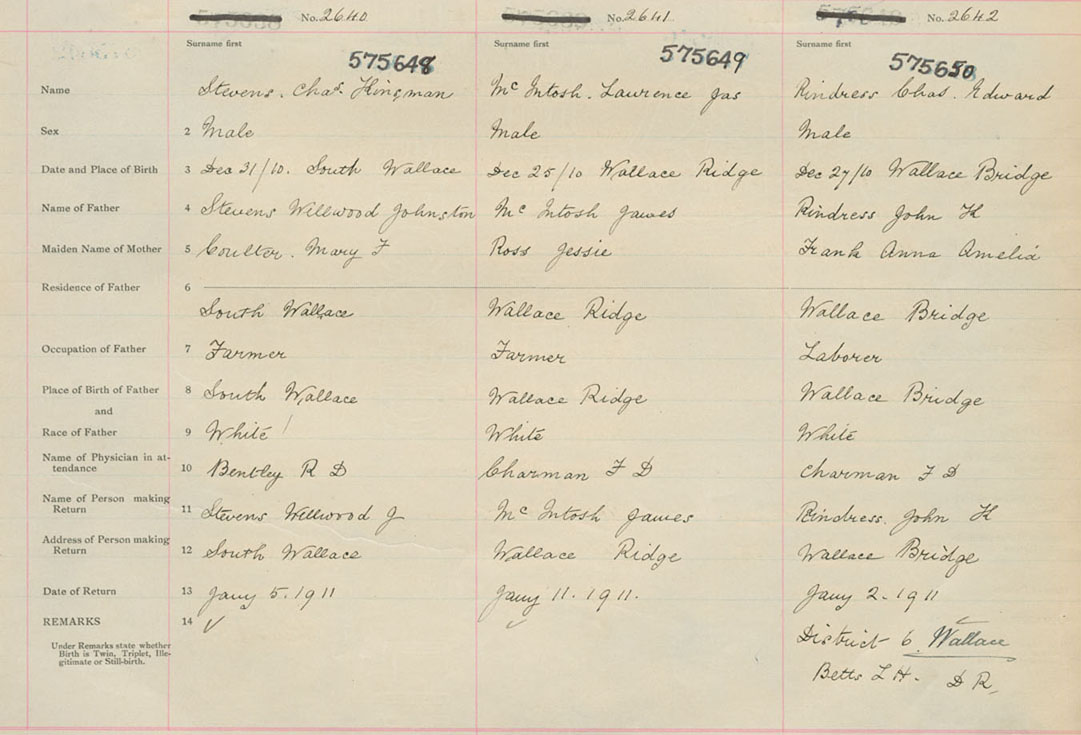 No. 2640 No. 2641 No. 2642
Surname first Surname first Surname first
575648 575649 575650
Name Stevens. Chas. Kingman McIntosh. Laurence Jas Rindress Chas. Edward
Sex 2 Male Male Male
Date and Place of Birth 3 Dec 31/10. South Wallace Dec 25/10 Wallace Ridge Dec 27/10 Wallace Bridge
Name of Father 4 Stevens Willwood Johnston McIntosh James Rindress John H
Maiden Name of Mother 5 Coulter. Mary F Ross Jessie Frank Anna Amelia
Residence of Father 6
South Wallace Wallace Ridge Wallace Bridge
Occupation of Father 7 Farmer Farmer Laborer
Place of Birth of Father 8 South Wallace Wallace Ridge Wallace Bridge
and
Race of Father 9 White White White
Name of Physician in at-
tendance 10 Bentley R D Charman F D Charman F D
Name of Person making
Return 11 Stevens Willwood J McIntosh James Rindress. John H
Address of Person making
Return 12 South Wallace Wallace Ridge Wallace Bridge
Date of Return 13 Jany 5. 1911 Jany 11. 1911. Jany 2. 1911
REMARKS 14 ✓ ✓ District 6. Wallace
Under Remarks state whether
Birth is Twin, Triplet, Ille-
gitimate or Still-birth.
Betts L H. D R.